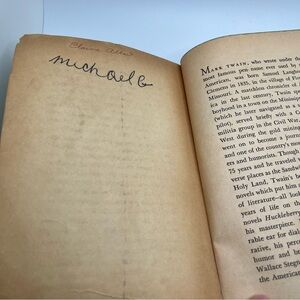 Michael C
MARK TWAIN, who wrote under the
most famous pen name ever used by
American, was born Samuel Langh
Clemens in 1835, in the village of
Missouri. A matchless chronicler of
ica in the last century, Twain
boyhood in a town on the
(which he later navigated as a
pilot), served briefly with a C
militia group in the Civil War,
West during the gold mining
went on to become a journ
and one of the country's mos
ers and humorists. Though
75 years and he traveled
verse places as the Sandw
Holy Land, Twain's
novels which put him
of literature—all look
years of life on the
novels Huckleberry
his masterpiece.
rable ear for dial
rative, his perso
humor and be
Wallace Stegne
the American